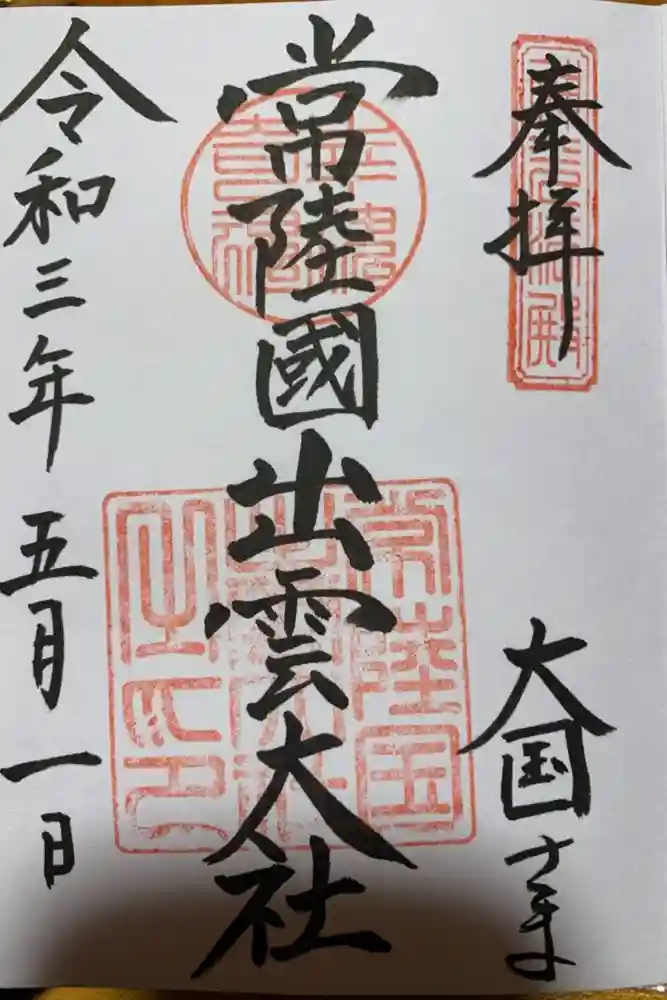 奉拝
大国さま
常陸國出雲大社
常陸国出雲大社之印
令和三年五月一日